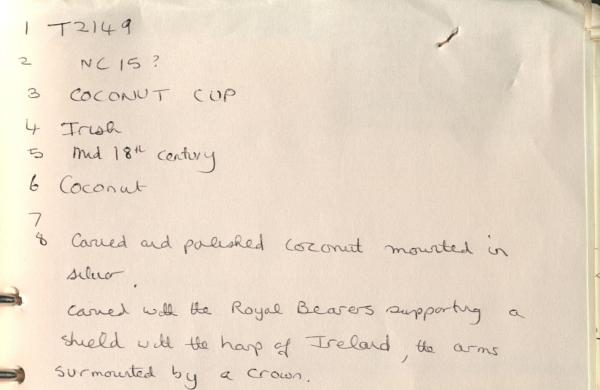 1 T2149
2 NC 15?
3 COCONUT CUP
4 Irish
5 Mid 18th century
6 Coconut
7
8 Carved and polished coconut mounted in
silver.
Carved with the Royal Bearers supporting a
shield with the harp of Ireland, the arms
surmounted by a crown.